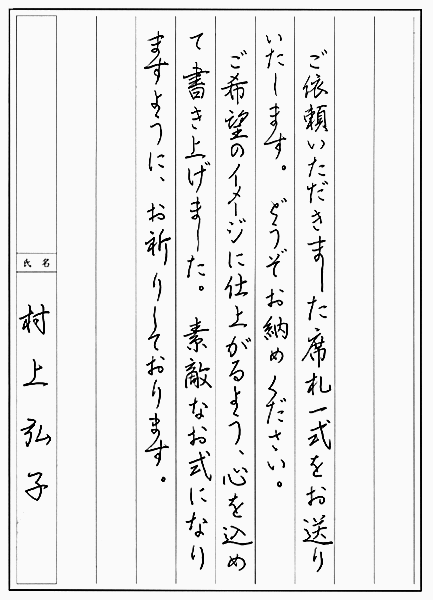 ご依頼いただきました席札一式をお送り
いたします。　どうぞお納めください。
ご希望のイメージに仕上がるよう、心を込め
て書き上げました。　素敵なお式になり
ますように、お祈りしております。
氏名
村上弘子